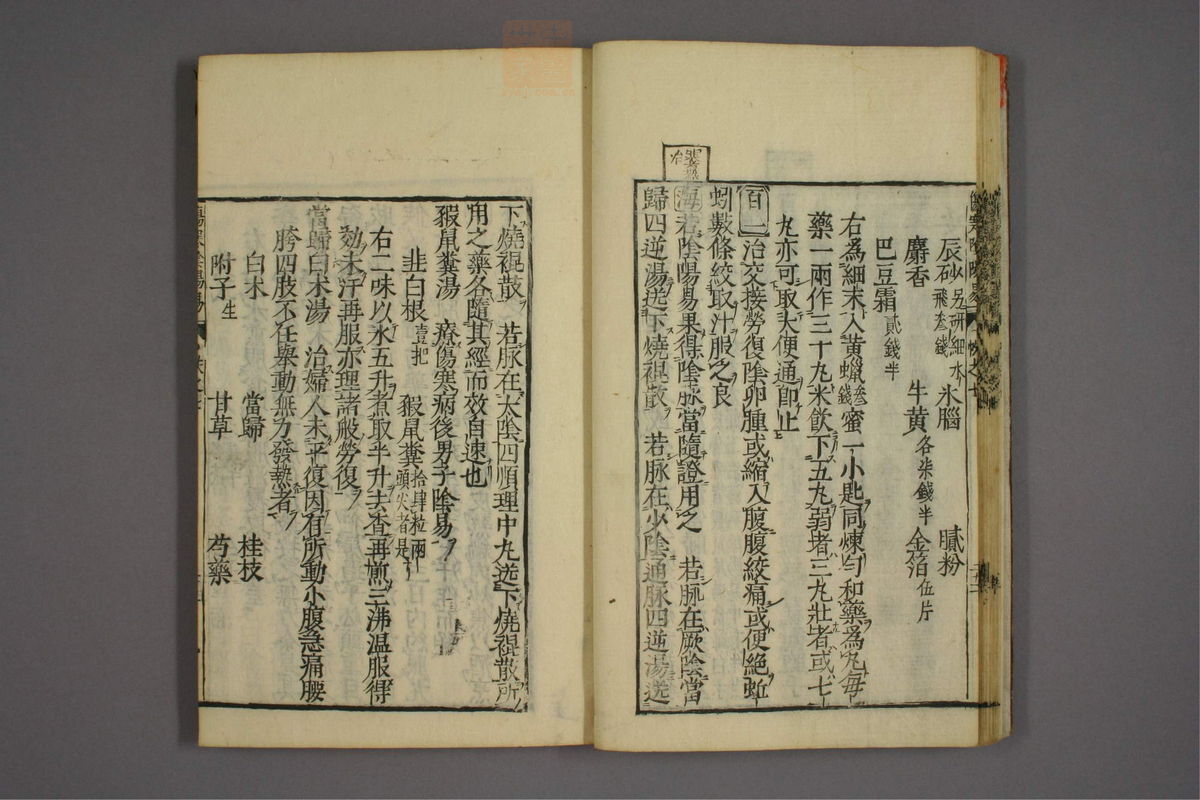 辰砂另研細水飛叁錢 氷腦 膩粉
麝香 牛黄各柒錢半 金箔伍片
巴豆霜貳錢半
右為細末入黄蠟叁錢蜜一小匙同煉勻和藥為丸每
藥一兩作三十丸米飲下五丸弱者三丸壯者或七
丸亦可取大便通即止
百一治交接勞復陰卵腫或縮入腹腹絞痛或便絶蚯
蚓數條絞取汁服之良
海若陰陽易果得陰脉當隨證用之 若脉在厥陰當
歸四逆湯送下燒裩散 若脉在少陰通脉四逆湯送
下燒裩散 若脉在太陰四順理中丸送下燒裩散所
用之藥各隨其經而效自速也
豭鼠糞湯 療傷寒病後男子陰易
韭白根壹把 豭鼠糞拾肆粒兩頭尖者是
右二味以水五升煮取半升去查再煎三沸温服得
効未汗再服亦理諸般勞復
當歸白术湯 治婦人未平復因有所動小腹急痛腰
胯四肢不任舉動無力發熱者
白术 當歸 桂枝
附子生 甘草 芍藥